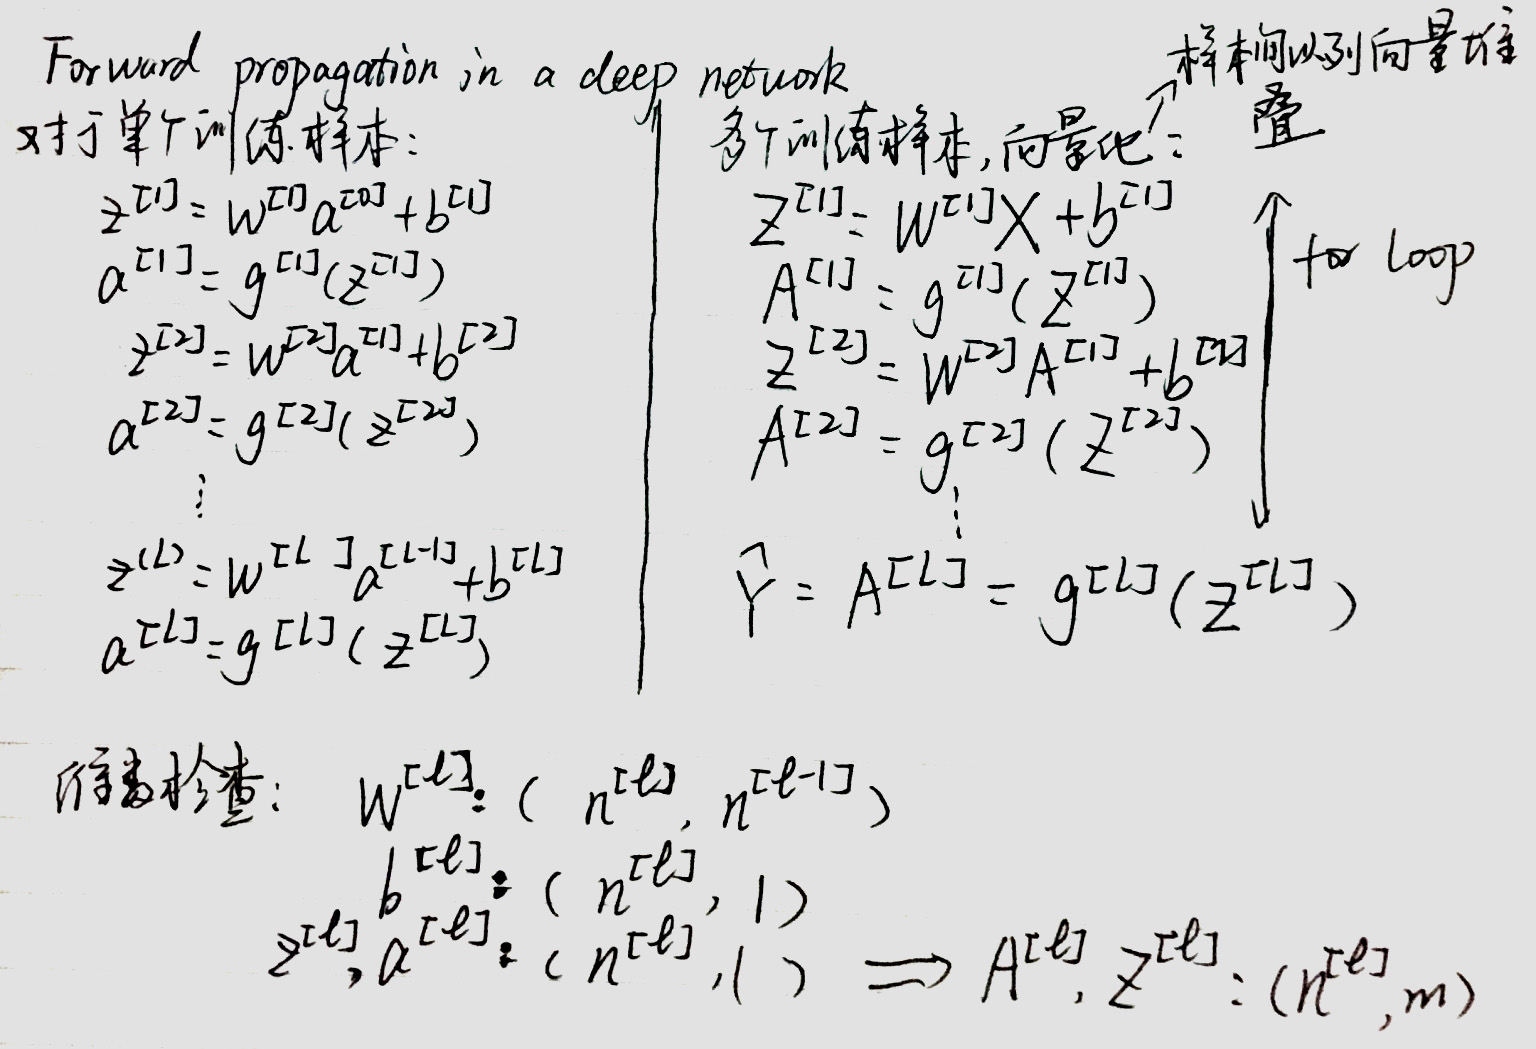 Forward propagation in a deep network
对于单个训练样本:
z^[1] = w^[1]a^[0]+b^[1]
a^[1] = g^[1](z^[1])
z^[2] = w^[2]a^[1]+b^[2]
a^[2] = g^[2](z^[2])
⋮
z^(L) = w^[L]a^[L-1]+b^[L]
a^[L] = g^[L](z^[L])
样本间以列向量堆
叠
多个训练样本,向量化:
Z^[1] = W^[1]X+b^[1]
A^[1] = g^[1](Z^[1])
Z^[2] = W^[2]A^[1]+b^[2]
A^[2] = g^[2](Z^[2])
⋮
Ŷ = A^[L] = g^[L](Z^[L])
for loop
维数检查: W^[l]: (n^[l], n^[l-1])
b^[l]: (n^[l], 1)
z^[l], a^[l]: (n^[l], 1) ⇒ A^[l], Z^[l]: (n^[l], m)